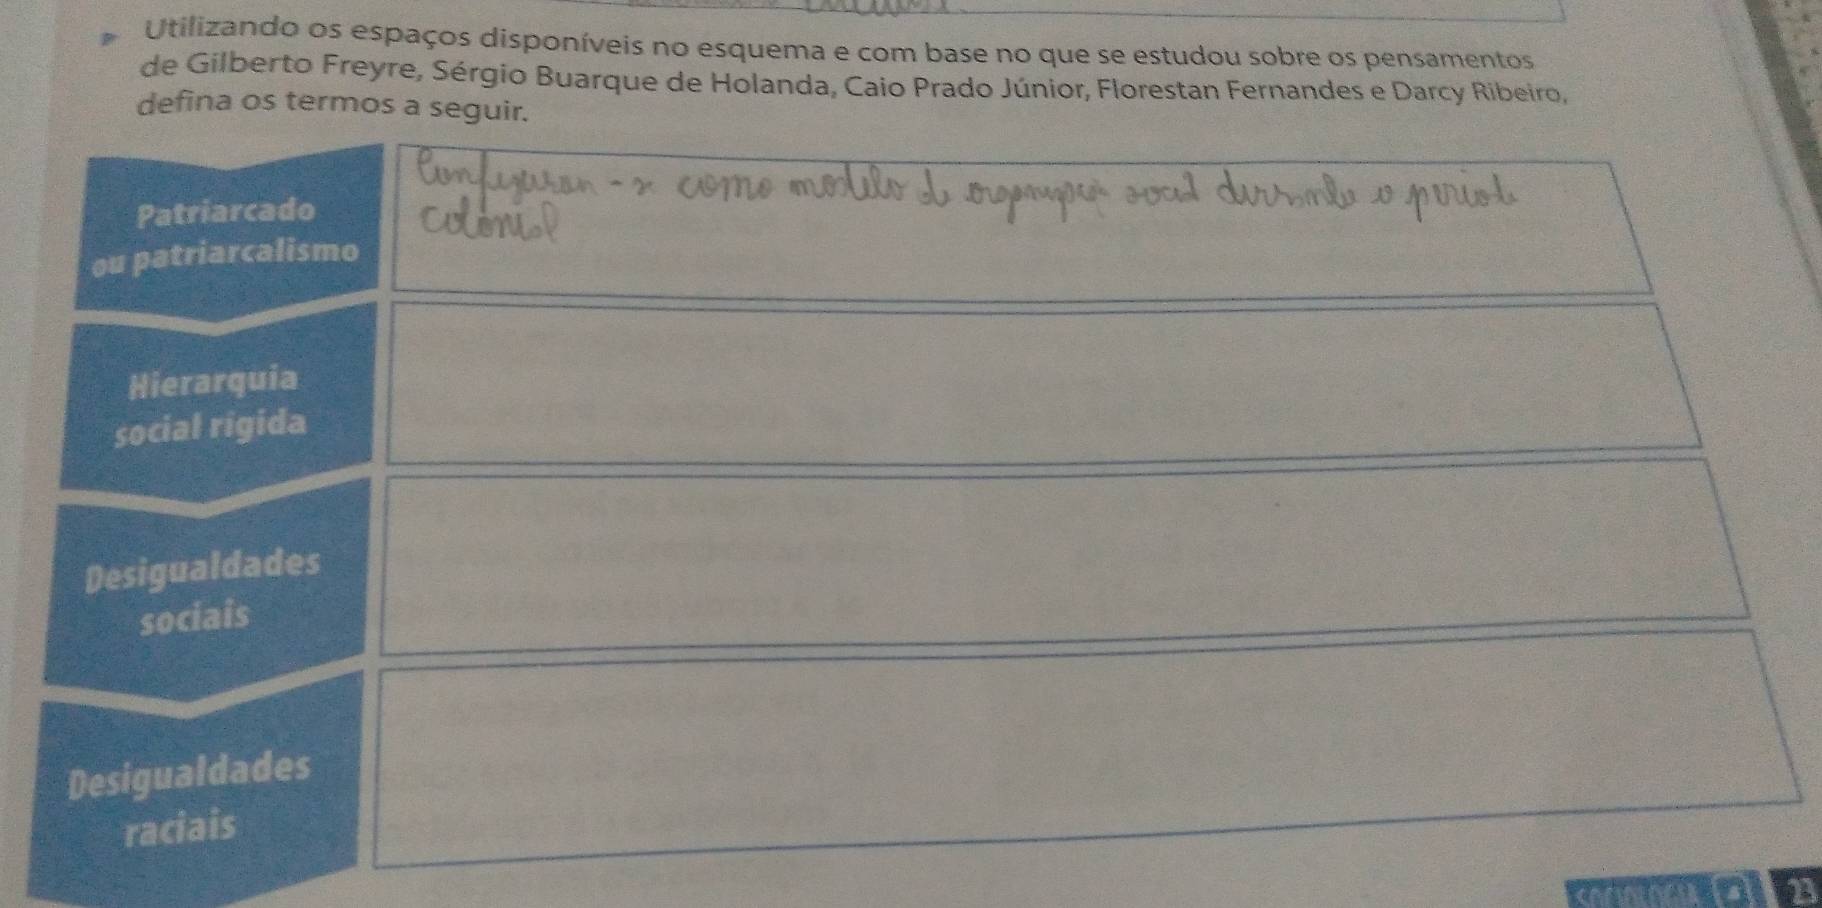 Utilizando os espaços disponíveis no esquema e com base no que se estudou sobre os pensamentos
de Gilberto Freyre, Sérgio Buarque de Holanda, Caio Prado Júnior, Florestan Fernandes e Darcy Ribeiro,
defina os termos a seguir.
Patriarcado
ou patriarcalismo
como modelo de organização social durante o período
colonial
Hierarquia
social rígida
Desigualdades
sociais
Desigualdades
raciais
SOCIOLOGIA 23